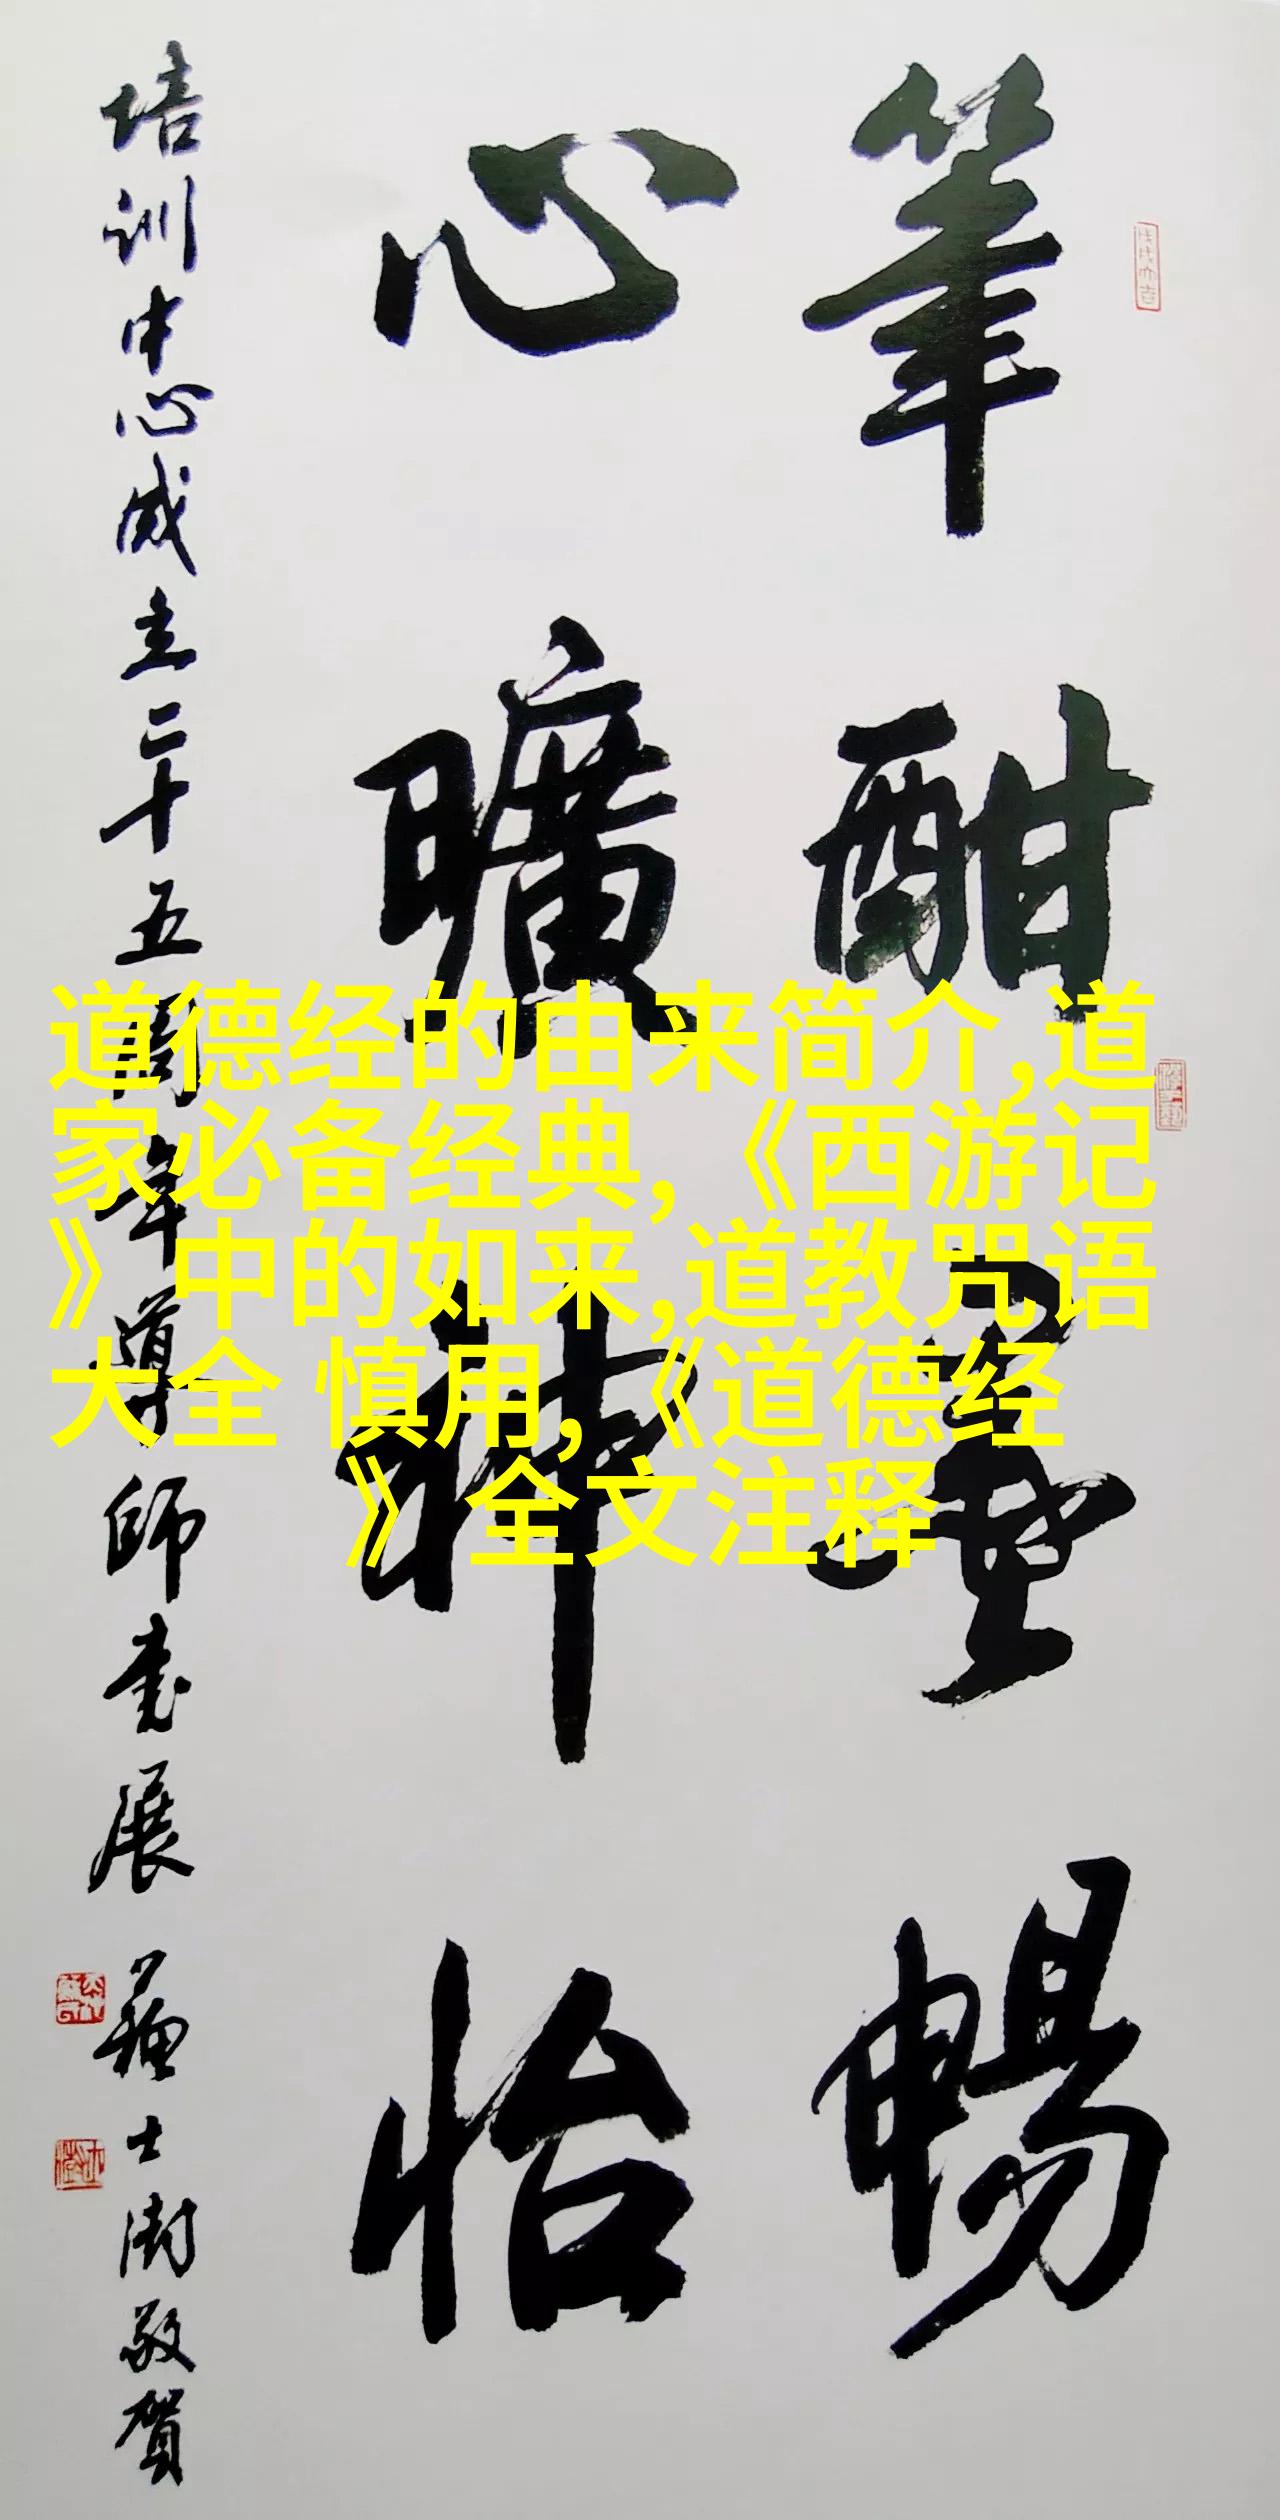 筆酣墨暢
心曠神怡
培训中心成立二十五周年導師書展
蘇士澍敬賀
道德经的由来简介,道
家必备经典,《西游记
》中的如来,道教咒语
大全 慎用,《道德经
》全文注释